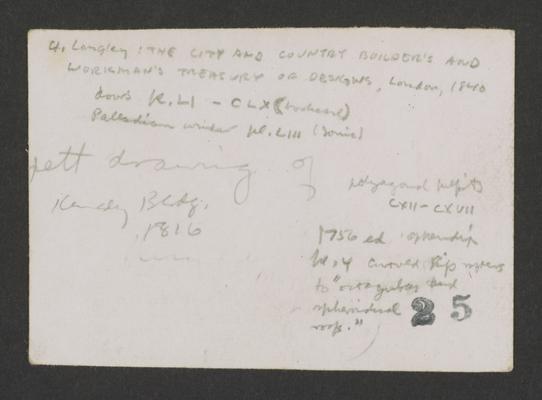 4, Langley: THE CITY AND COUNTRY BUILDER'S AND
WORKMAN'S TREASURY OF DESIGNS, London, 1840
doors pl. LI - CLX (bookcase)
Palladian window pl. LIII (Ionic)
pett drawing of
Bldg.
1816
polygonal pulpits
CXII-CXVII
1756 ed. appendix
pl. 4 curved hip
to "octagular and
spheroidical
roofs."
25